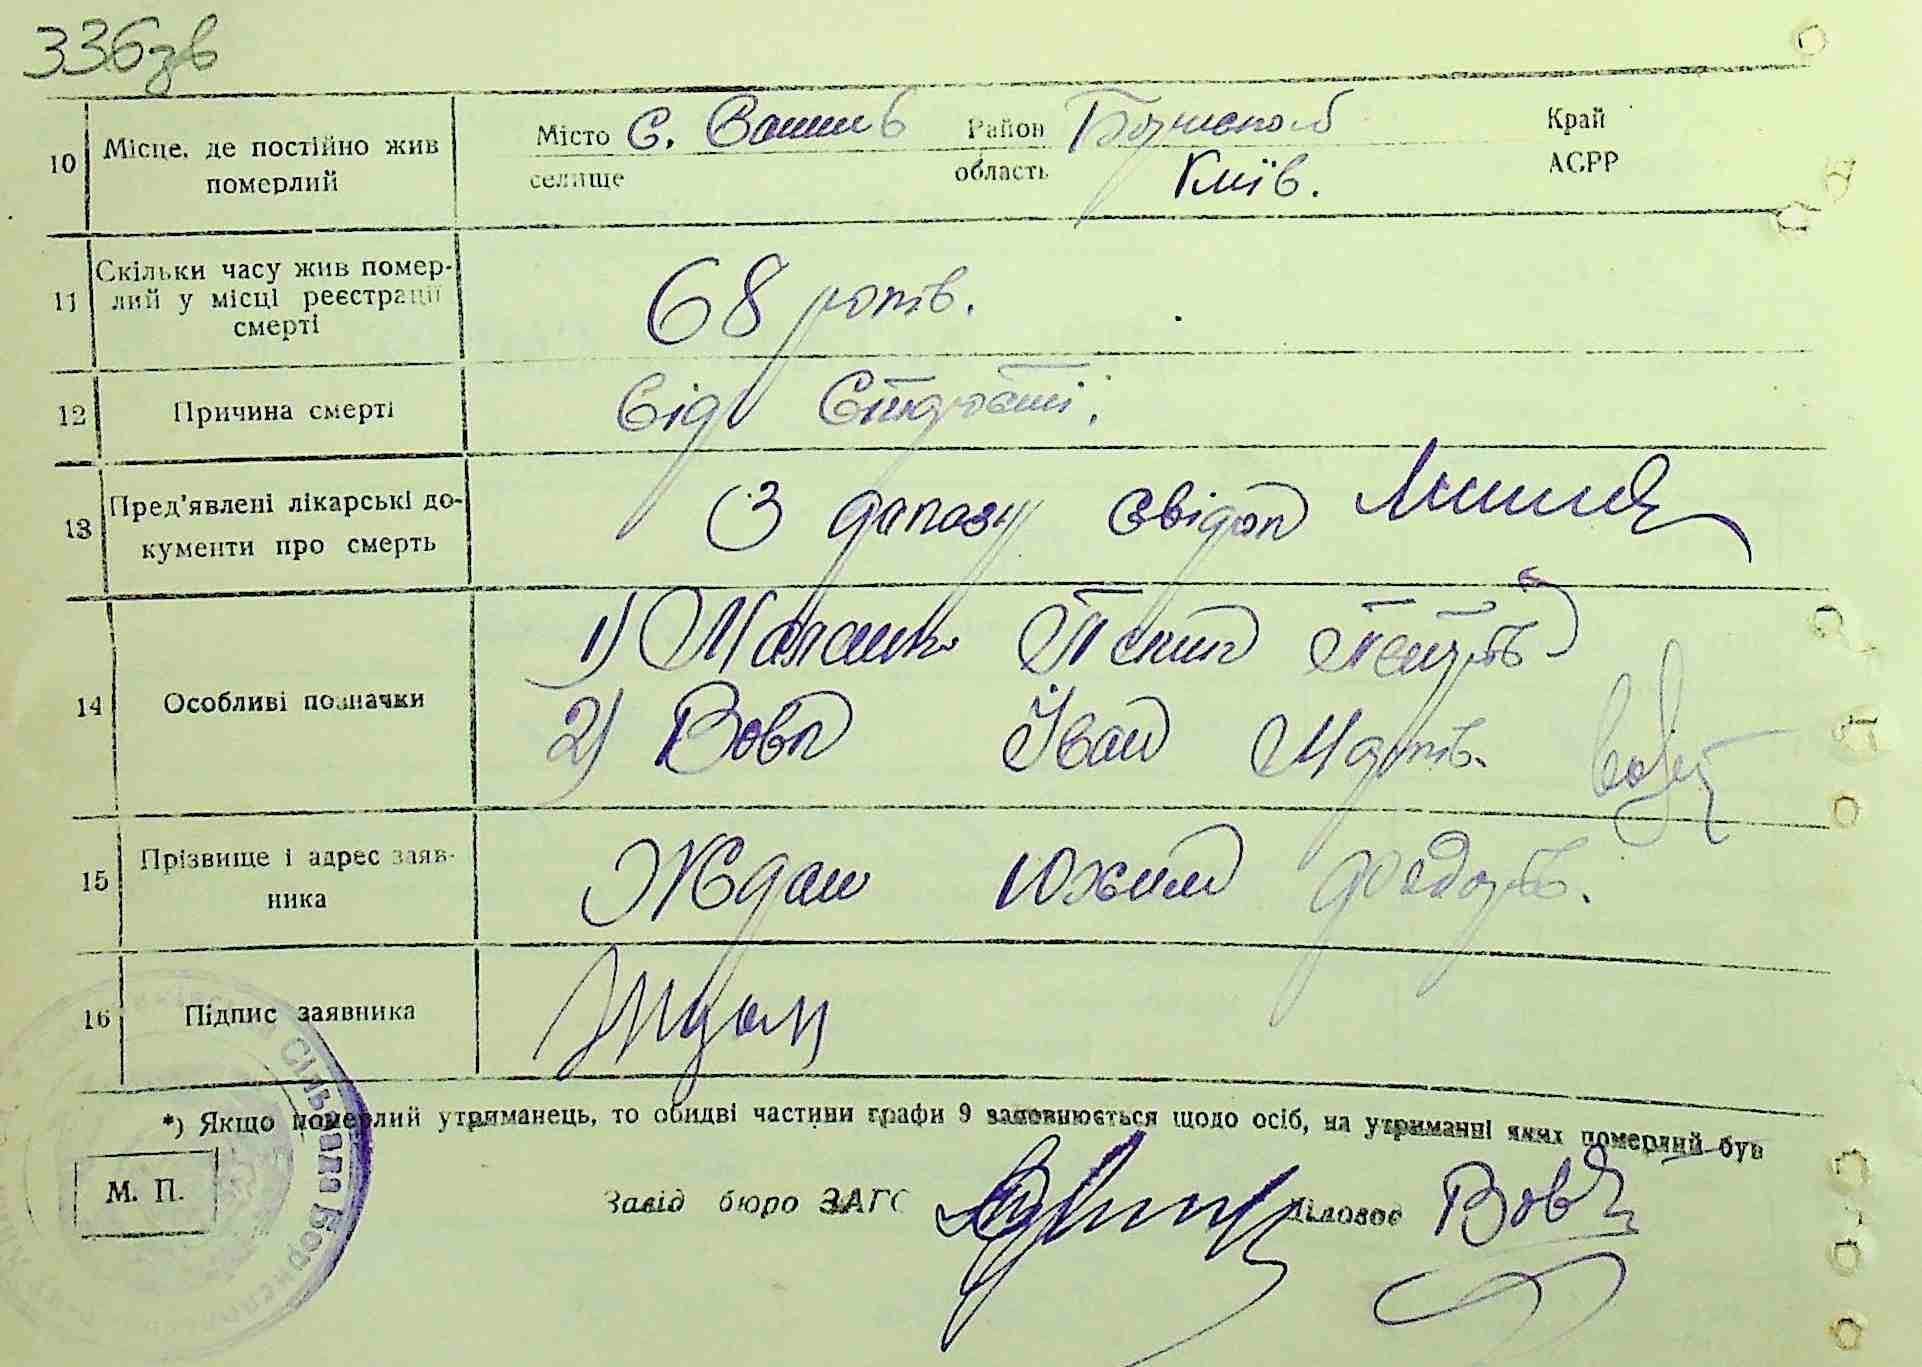 336зв
10 Місце, де постійно жив померлий
Місто с. Район Край
селище область Київ. АСРР
11 Скільки часу жив помер-
лий у місці реєстрації
смерті
68 років.
12 Причина смерті
Від Старості.
13 Пред'явлені лікарські до-
кументи про смерть
З показу свідок
14 Особливі позначки
1)
2) Вовк Іван
15 Прізвище і адрес заяв-
ника
Ждан Юхим Федотов.
16 Підпис заявника
Ждан
*) Якщо померлий утриманець, то обидві частини графи 9 заповнюється щодо осіб, на утриманні яких померлий був
М. П.
Завід бюро ЗАГС Діловод Вовк